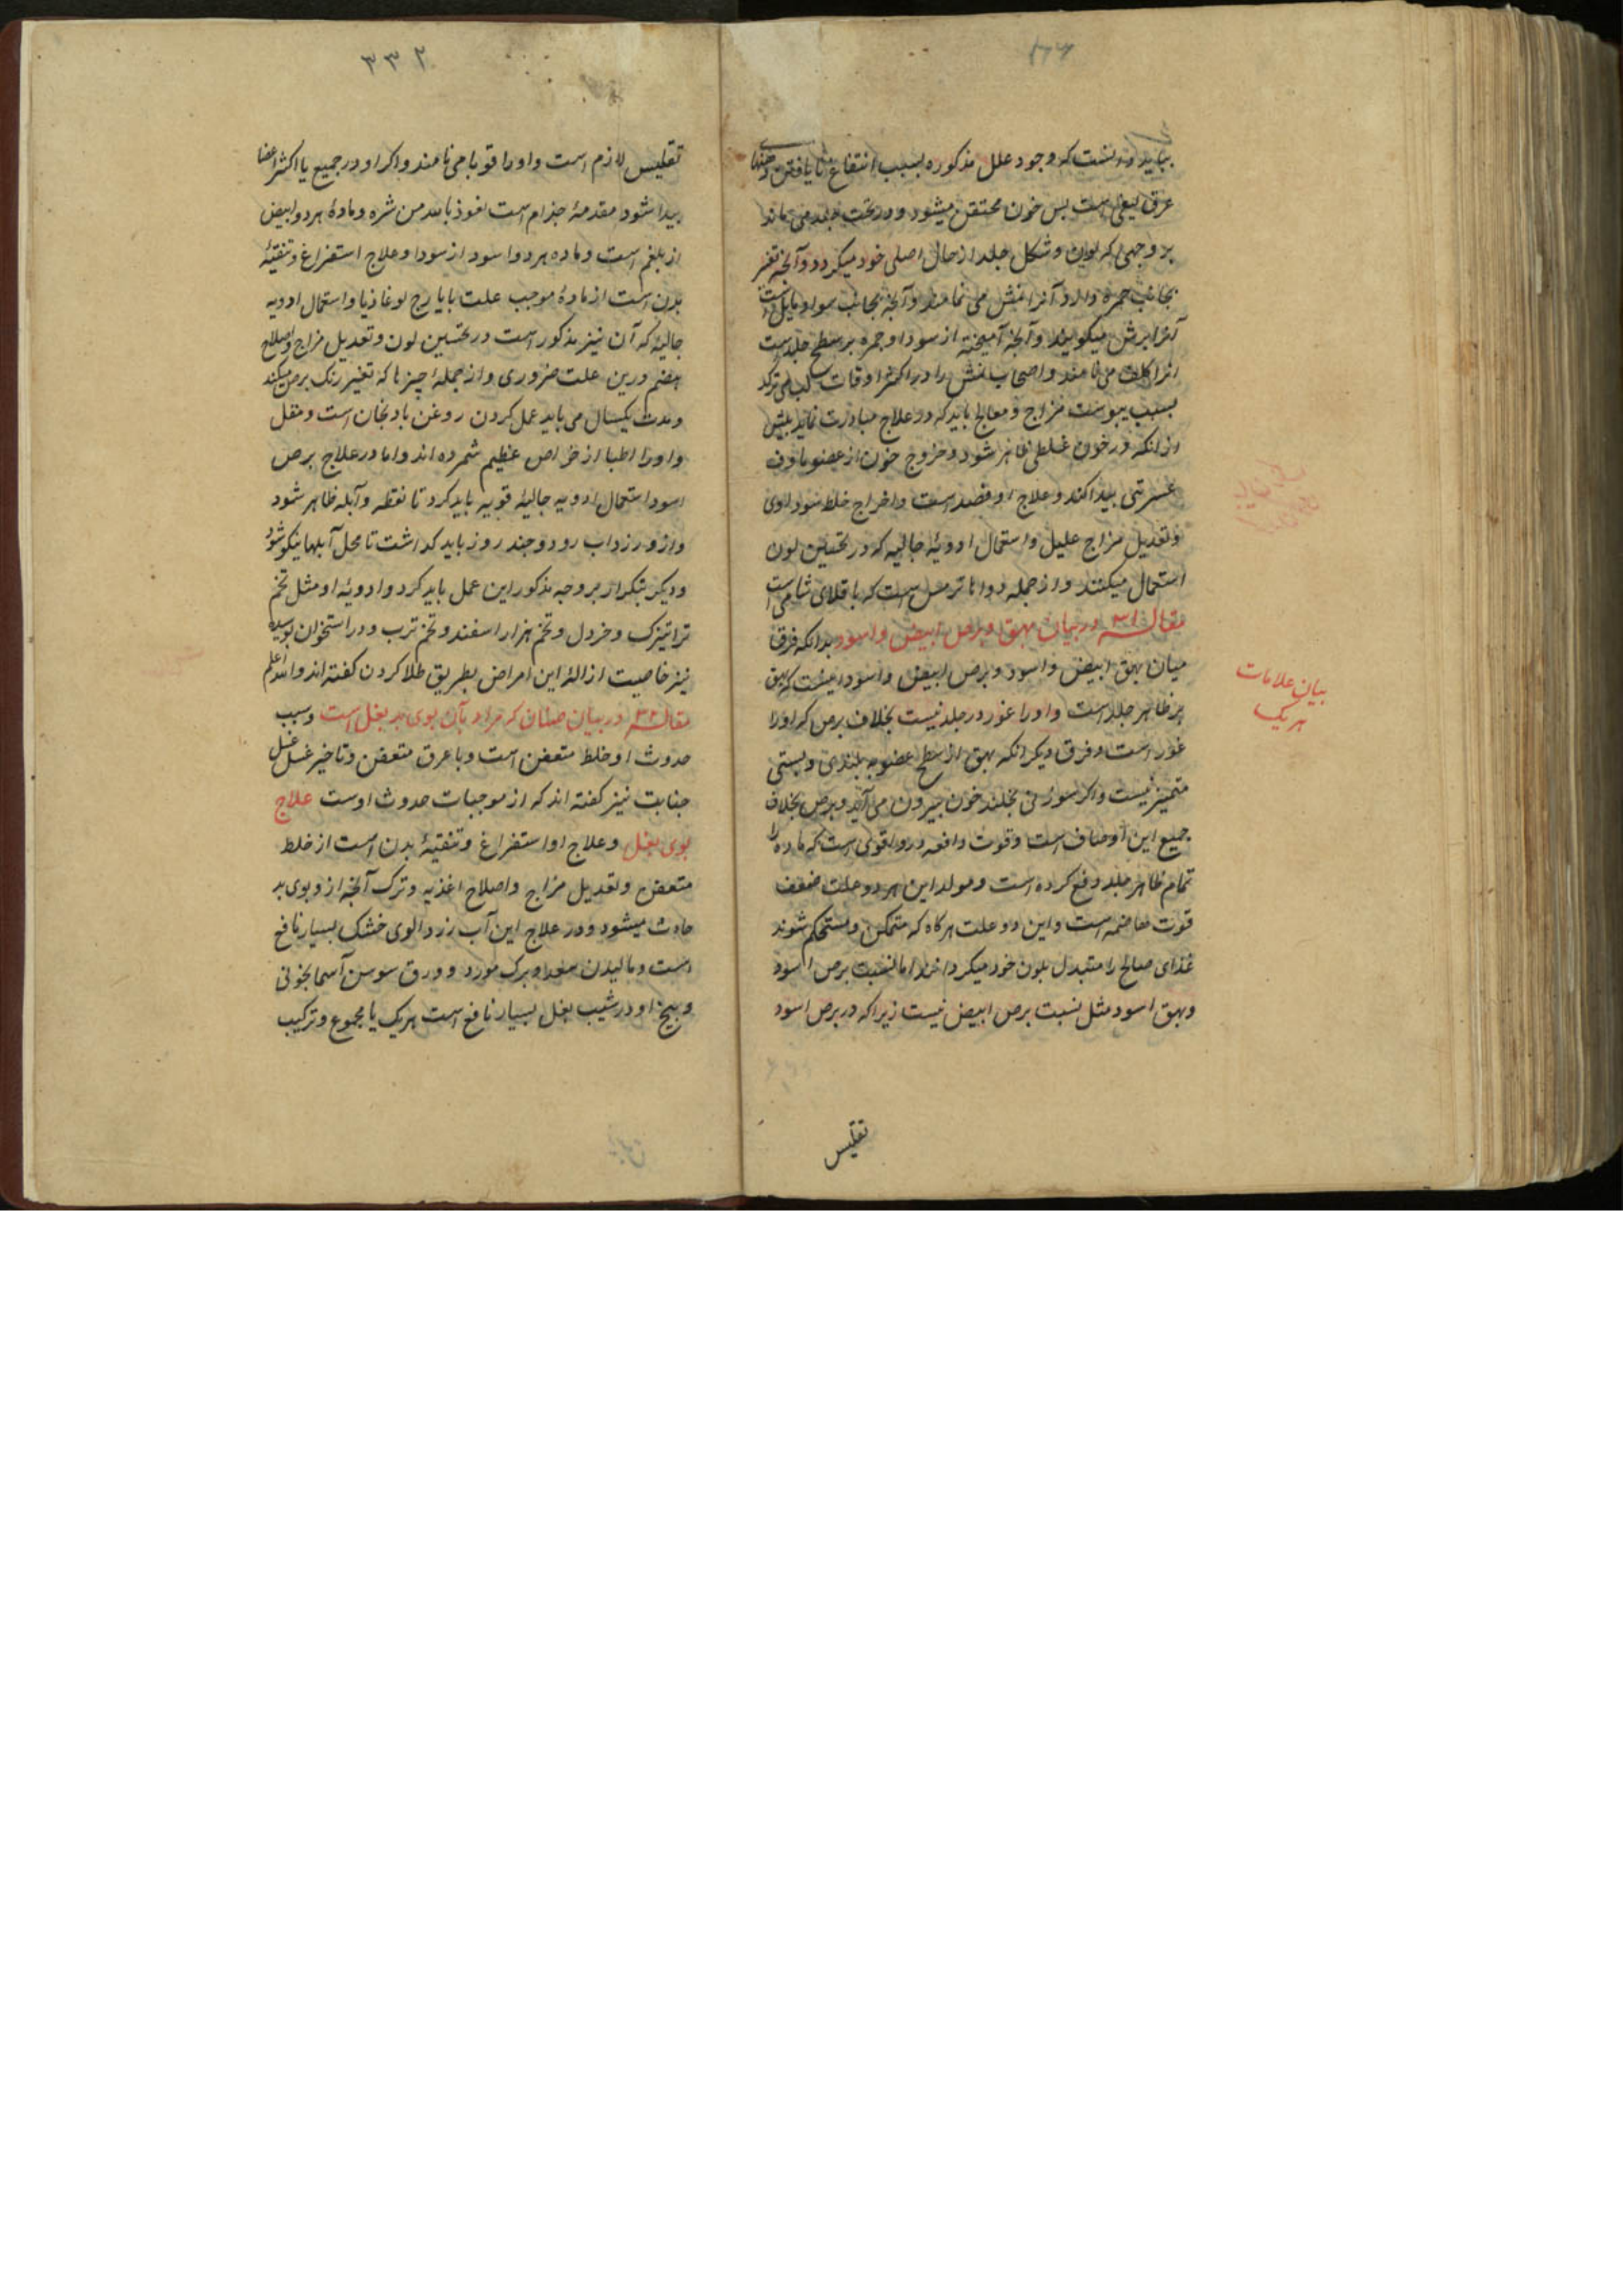 بباید دانست که وجود علل مذکوره بسبب انتفاع
عرق لیفی است بس خون محتقن میشود و در تحت جلد می ماند
بر وجهی که لون و شکل جلد از حال اصلی خود میکردد و آنچه تغیر
بجانب حمره دارد آنرا نمش می نامند و آنچه بجانب سواد مایل است
آنرا برش میکویند و آنچه آمیخته از سودا و حمره بر سطح جلد است
انرا کلف می نامند و اصحاب نمش را در اکثر اوقات لب می ترکد
بسبب یبوست مزاج و معالج باید که در علاج مبادرت نماید بیش
از انکه در خون غلظی ظاهر شود و خروج خون از عضو ماوف
عسرتی بیدا کند و علاج او فصد است و اخراج خلط سوداوی
و تعدیل مزاج علیل و استعمال ادویهٔ جالیه که در تحسین لون
استعمال میکنند و از جمله دواها ترمس است که باقلای شامی است
مقاله ۳۱ در بیان بهق و برص ابیض و اسود بدانکه فرق
میان بهق ابیض و اسود و برص ابیض و اسود اینست که بهق
بر ظاهر جلد است و اورا غور در جلد نیست بخلاف برص که اورا
غور است و فرق دیکر انکه بهق از سطح عضو به بلندی و پستی
متمیز نیست و اکر سوزنی بخلند خون بیرون می آید و برص بخلاف
جمیع این اوصاف است و قوت دافعه درو اقوی است که ماده را
تمام ظاهر جلد دفع کرده است و مولد این هر دو علت ضعف
قوت هاضمه است و این دو علت هرکاه که متمکن و مستحکم شوند
غذای صالح را متبدل بلون خود میکردانند اما نسبت برص اسود
وبهق اسود مثل نسبت برص ابیض نیست زیرا که در برص اسود
بیان علامات
هر یک
تقلیس
۳۳۲
تقلیس لازم است و اورا قوبا می نامند و اکر او در جمیع یا اکثر اعضا
بیدا شود مقدمهٔ جذام است نعوذ بالله من شره و مادهٔ هر دو ابیض
از بلغم است و ماده هر دو اسود از سودا و علاج استفراغ و تنقیهٔ
بدن است از مادهٔ موجب علت بایارج لوغاذیا و استعمال ادویه
جالیه که آن نیز مذکور است در تحسین لون و تعدیل مزاج و اصلاح
هضم درین علت ضروری و از جمله چیزها که تغییر رنک برص میکند
و مدت یکسال می باید عمل کردن روغن بادنجان است و مقل
و اورا اطبا از خواص عظیم شمرده اند و اما در علاج برص
اسود استعمال ادویه جالیهٔ قویه باید کرد تا نفطه و آبله ظاهر شود
و ازو زرداب رود و چند روز باید کداشت تا محل آبلها نیکو شود
و دیکر بتکرار بر وجه مذکور این عمل باید کرد و ادویهٔ او مثل تخم
تراتیزک و خردل و تخم هزار اسفند و تخم ترب و در استخوان بوسیده
نیز خاصیت ازالهٔ این امراض بطریق طلا کردن کفته اند والله اعلم
مقاله ۳۲ در بیان صنان که مراد بآن بوی بد بغل است و سبب
حدوث او خلط متعفن است و با عرق متعفن و تاخیر غسل
جنابت نیز کفته اند که از موجبات حدوث اوست علاج
بوی بغل و علاج او استفراغ و تنقیهٔ بدن است از خلط
متعفن و تعدیل مزاج و اصلاح اغذیه و ترک آنچه ازو بوی بد
حادث میشود و در علاج این آب زردالوی خشک بسیار نافع
است و مالیدن سعد و برک مورد و ورق سوسن آسمانجونی
و بیخ او در شیب بغل بسیار نافع است هر یک یا مجموع و ترکیب